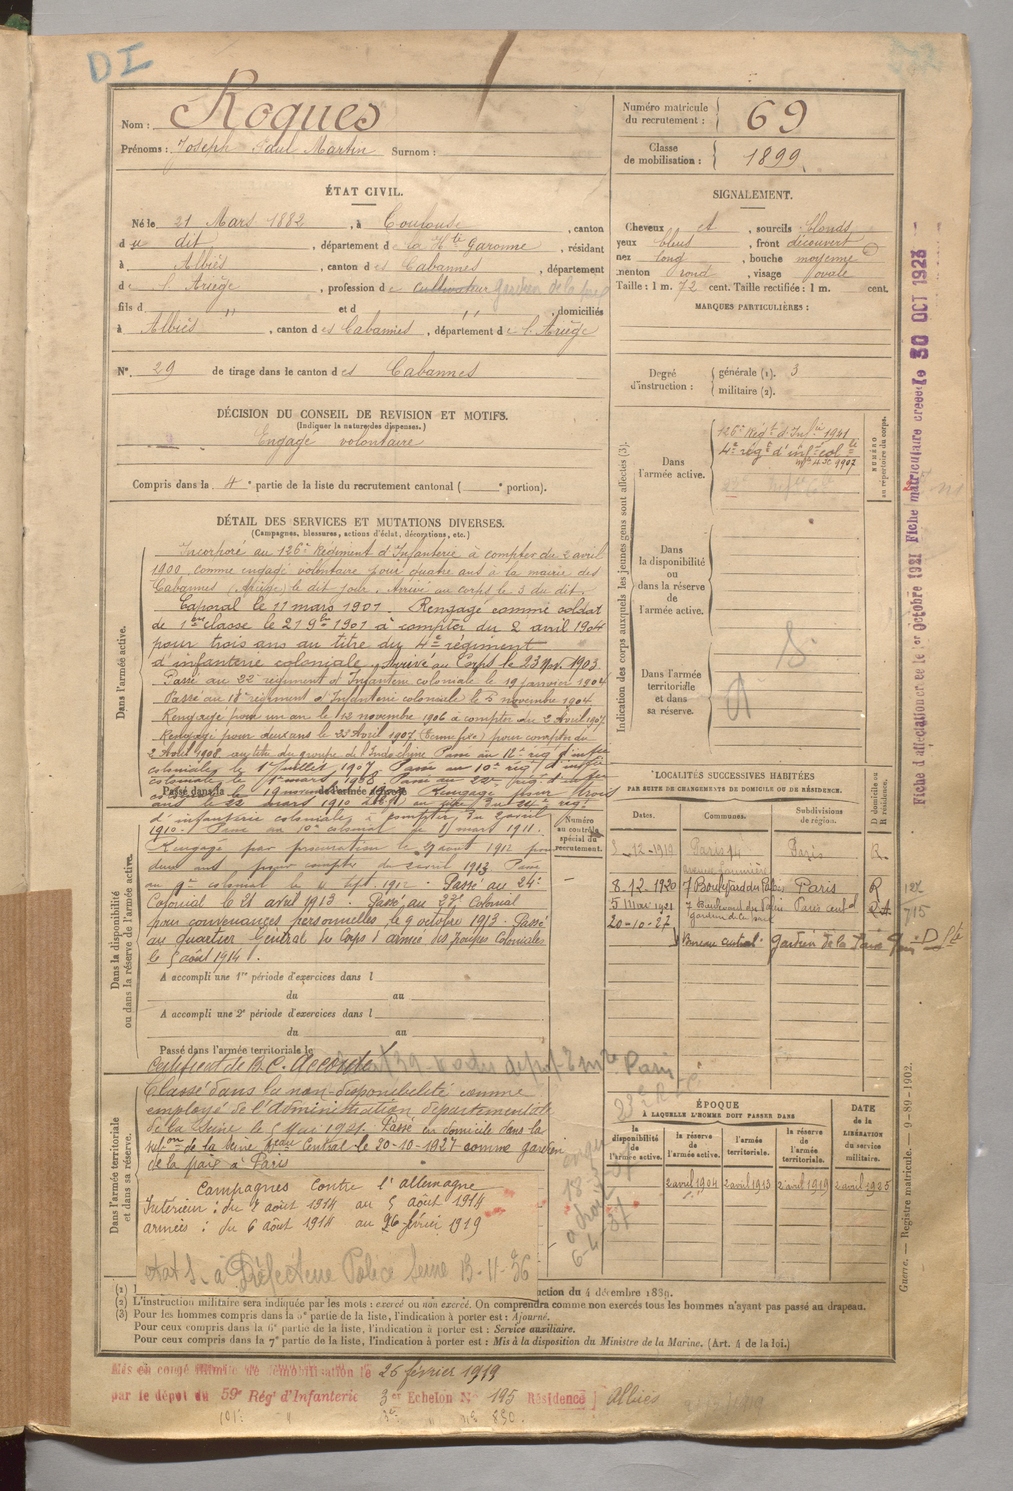 DI
Nom : Roques
Prénoms : Joseph Paul Martin Surnom :
Numéro matricule du recrutement : 69
Classe de mobilisation : 1899
ÉTAT CIVIL.
Né le 21 Mars 1882, à Toulouse, canton
du dit, département de la Hte Garonne, résidant
à Albiès, canton des Cabannes, département
de l'Ariège, profession de cultivateur gardien de la paix
fils d " et d " , domiciliés
à Albiès, canton des Cabannes, département de l'Ariège
N° 29 de tirage dans le canton des Cabannes
SIGNALEMENT.
Cheveux et, sourcils blonds
yeux bleus, front découvert
nez long, bouche moyenne
menton rond, visage ovale
Taille : 1 m. 72 cent. Taille rectifiée : 1 m. cent.
MARQUES PARTICULIÈRES :
Degré d'instruction : générale (1). 3
militaire (2).
DÉCISION DU CONSEIL DE REVISION ET MOTIFS.
(Indiquer la nature des dispenses.)
Engagé volontaire
Compris dans la 4e partie de la liste du recrutement cantonal ( e portion).
Indication des corps auxquels les jeunes gens sont affectés (3).
Dans l'armée active.
126e Régt d'Infie 1941
4e régt d'infie colle
mle 4 1907
NUMÉRO au répertoire du corps.
Dans la disponibilité ou dans la réserve de l'armée active.
Dans l'armée territoriale et dans sa réserve.
DÉTAIL DES SERVICES ET MUTATIONS DIVERSES.
(Campagnes, blessures, actions d'éclat, décorations, etc.)
Dans l'armée active.
Incorporé au 126e Régiment d'Infanterie à compter du 2 avril
1900 comme engagé volontaire pour quatre ans à la mairie des
Cabannes (Ariège) le dit jour. Arrivé au corps le 3 du dit.
Caporal le 11 mars 1901. Rengagé comme soldat
de 1ère classe le 21 9bre 1901 à compter du 2 avril 1904
pour trois ans au titre du 4e régiment
d'infanterie coloniale. Arrivé au Corps le 23 nov. 1903.
Passé au 22e régiment d'Infanterie coloniale le 19 janvier 1904
Passé au 18e régiment d'Infanterie coloniale le 5 novembre 1904.
Rengagé pour un an le 13 novembre 1906 à compter du 2 avril 1907.
Rengagé pour deux ans le 23 Avril 1907 pour compter du
2 Avril 1908 au titre du groupe de l'Indochine Passé au 12e rég. d'infie
coloniale le 1er juillet 1907 Passé au 10e rég. d'infie
coloniale le 1er mars 1908 Passé au 22e rég. d'infie
coloniale le 19 novembre Rengagé pour trois
ans le 22 mars 1910 au titre du 22e régt
d'infanterie coloniale à compter du 2 avril
1910. Passé au 10e colonial le 11 mars 1911.
Passé dans la de l'armée active
Dans la disponibilité ou dans la réserve de l'armée active.
Rengagé par procuration le 29 août 1912 pour
deux ans pour compter du 2 avril 1913 Passé
au 9e colonial le 4 sept. 1912. Passé au 24e
Colonial le 21 avril 1913. Passé au 27e Colonial
pour convenances personnelles, le 9 octobre 1913. Passé
au quartier Général du Corps d'armée des troupes Coloniales
le 5 août 1914.
A accompli une 1re période d'exercices dans l
du au
A accompli une 2e période d'exercices dans l
du au
Passé dans l'armée territoriale le
Certificat de B. C. Accordé
Numéro au contrôle spécial du recrutement.
Dans l'armée territoriale et dans sa réserve.
Classé dans la non-disponibilité comme
employé de l'administration départementale
de la Seine le 5 Mai 1921. Passé en domicile dans la
subon de la Seine Beau Central le 20-10-1927 comme gardien
de la paix à Paris
Campagnes contre l'allemagne
Intérieur : du 2 août 1914 au 5 août 1914
armées : du 6 août 1914 au 26 février 1919
état S. à Préfecture Police Seine 13-11-36
LOCALITÉS SUCCESSIVES HABITÉES
PAR SUITE DE CHANGEMENTS DE DOMICILE OU DE RÉSIDENCE.
Dates. Communes. Subdivisions de région. D domicile ou R résidence.
3-12-1919 Paris 14 Paris R.
8-12-1920 7 Boulevard du Palais Paris R
5 Mai 1921 7 Boulevard du Palais Paris central
gardien de la paix
20-10-27
Bureau central gardien de la Paix
ÉPOQUE
À LAQUELLE L'HOMME DOIT PASSER DANS
la disponibilité de l'armée active. la réserve de l'armée active. l'armée territoriale. la réserve de l'armée territoriale.
DATE de la LIBÉRATION du service militaire.
2 avril 1904 2 avril 1913 2 avril 1919 2 avril 1925
6-4-37
(1) ction du 4 décembre 1889.
(2) L'instruction militaire sera indiquée par les mots : exercé ou non exercé. On comprendra comme non exercés tous les hommes n'ayant pas passé au drapeau.
(3) Pour les hommes compris dans la 5e partie de la liste, l'indication à porter est : Ajourné.
Pour ceux compris dans la 6e partie de la liste, l'indication à porter est : Service auxiliaire.
Pour ceux compris dans la 7e partie de la liste, l'indication à porter est : Mis à la disposition du Ministre de la Marine. (Art. 4 de la loi.)
Mis en congé illimité de démobilisation le 26 février 1919
par le dépôt du 59e Régt d'Infanterie 3er Echelon N° 195 Résidence Albiès
Fiche d'affectation créée le 1er Octobre 1921 Fiche matriculaire créée le 30 OCT 1923
Guerre. — Registre matricule. — 9-89-1902.